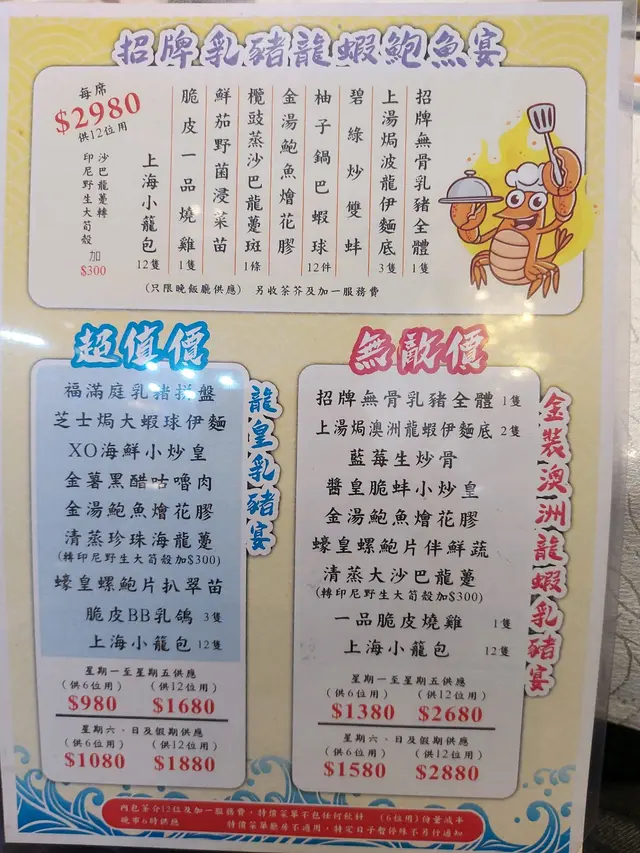 招牌乳豬龍蝦鮑魚宴
招牌無骨乳豬全體 1隻
上湯焗波龍伊麵底 3隻
碧綠炒雙蚌
柚子鍋巴蝦球 12件
金湯鮑魚燴花膠
欖豉蒸沙巴龍躉斑 1條
鮮茄野菌浸菜苗
脆皮一品燒雞 1隻
上海小籠包 12隻
每席
$2980
供12位用
沙巴龍躉轉
印尼野生大筍殼
加
$300
(只限晚飯廳供應) 另收茶芥及加一服務費
超值價
龍皇乳豬宴
福滿庭乳豬拼盤
芝士焗大蝦球伊麵
XO海鮮小炒皇
金薯黑醋咕嚕肉
金湯鮑魚燴花膠
清蒸珍珠海龍躉
(轉印尼野生大筍殼加$300)
蠔皇螺鮑片扒翠苗
脆皮BB乳鴿 3隻
上海小籠包 12隻
星期一至星期五供應
(供6位用) (供12位用)
$980 $1680
星期六、日及假期供應
(供6位用) (供12位用)
$1080 $1880
無敵價
金裝澳洲龍蝦乳豬宴
招牌無骨乳豬全體 1隻
上湯焗澳洲龍蝦伊麵底 2隻
藍莓生炒骨
醬皇脆蚌小炒皇
金湯鮑魚燴花膠
蠔皇螺鮑片伴鮮蔬
清蒸大沙巴龍躉
(轉印尼野生大筍殼加$300)
一品脆皮燒雞 1隻
上海小籠包 12隻
星期一至星期五供應
(供6位用) (供12位用)
$1380 $2680
星期六、日及假期供應
(供6位用) (供12位用)
$1580 $2880
內包茶介12位及加一服務費，特價菜單不包任何飲料 (6位用)份量減半
晚市6時供應 特價菜單廳房不適用，特定日子暫停殊不另行通知